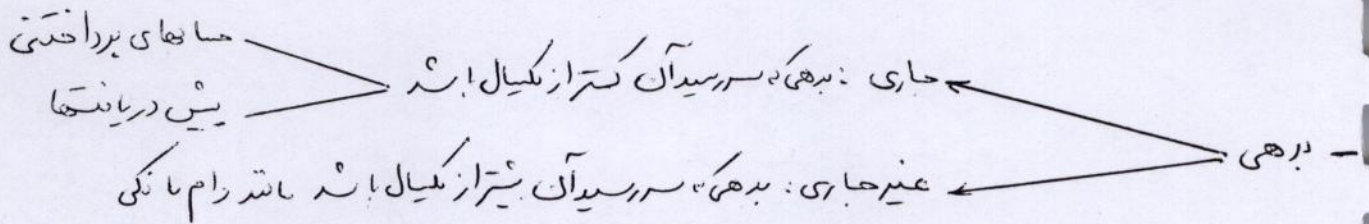 - بدهی
جاری : بدهی که سررسید آن کمتر از یکسال باشد
حسابهای پرداختنی
پیش دریافتها
غیرجاری : بدهی که سررسید آن بیشتر از یکسال باشد مانند وام بانکی